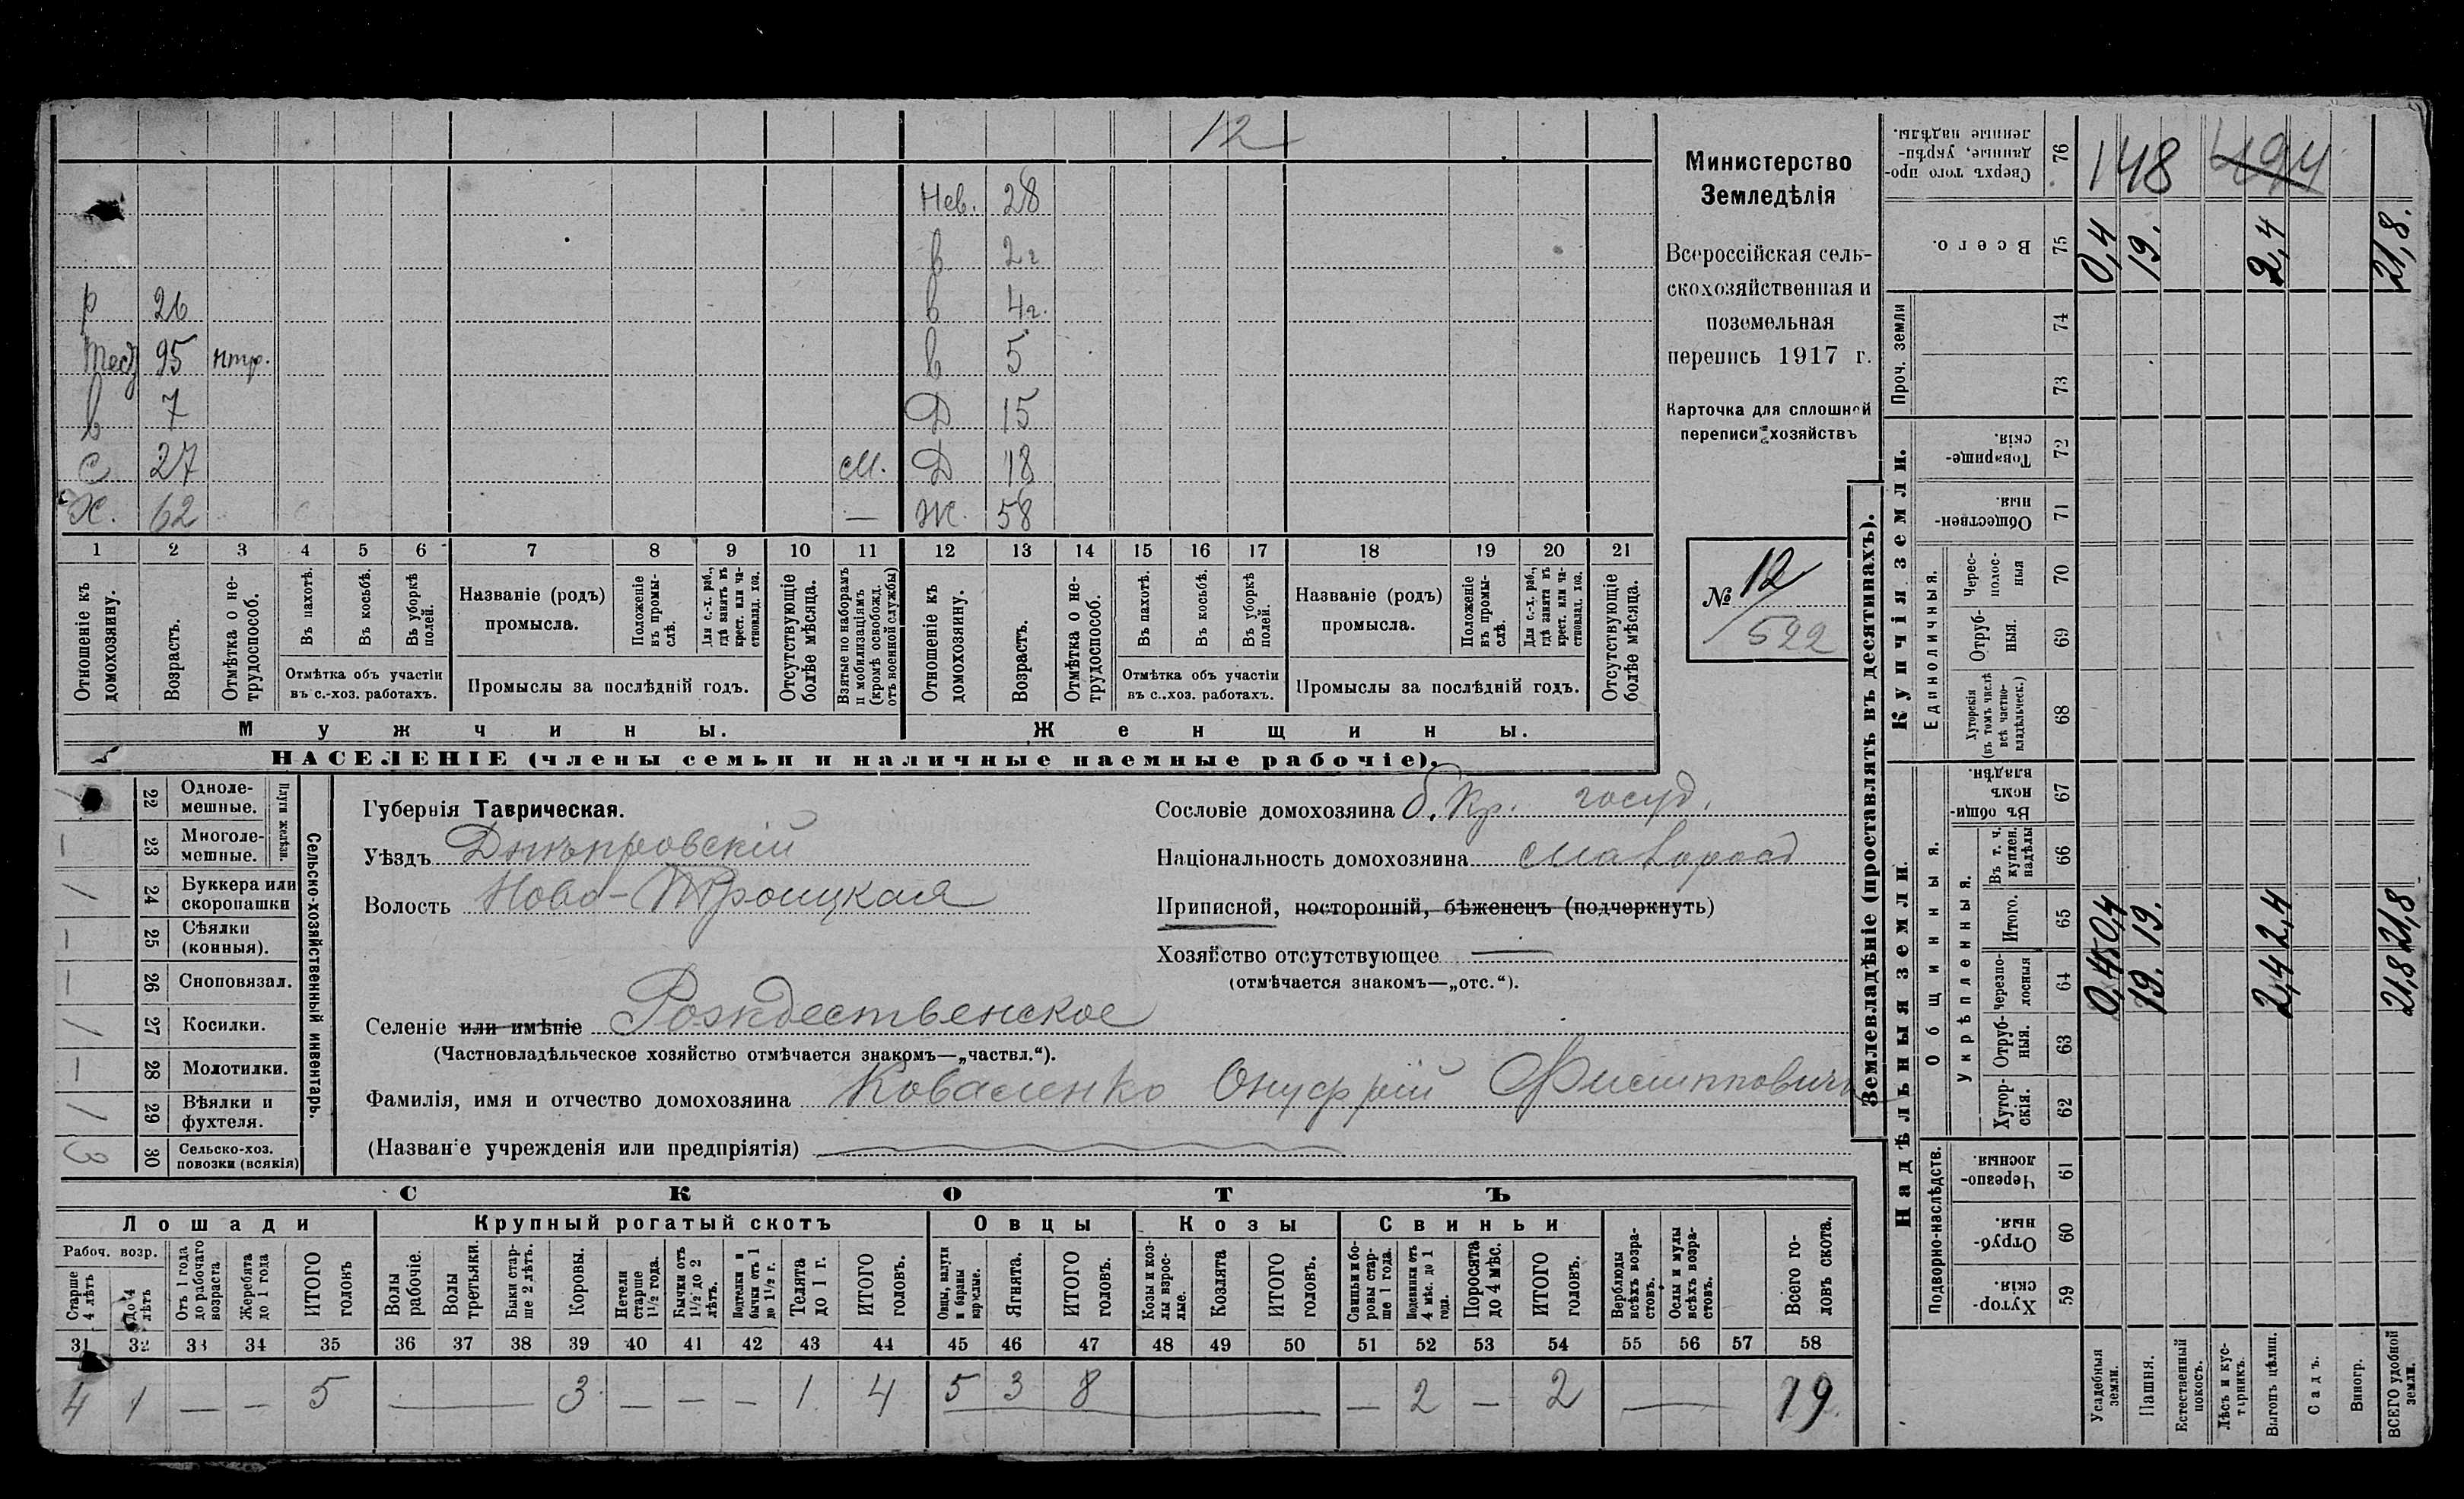 12
Нев. 28
в 2 г
р 26 в 4 г.
тесть 95 нтр. в 5
в 7 Д 15
с 27 м. Д 18
Х. 62 — Ж. 58
1 2 3 4 5 6 7 8 9 10 11 12 13 14 15 16 17 18 19 20 21
Отношеніе къ домохозяину.
Возрастъ.
Отмѣтка о нетрудоспособ.
Въ пахотѣ.
Въ косьбѣ.
Въ уборкѣ полей.
Отмѣтка объ участіи
въ с.-хоз. работахъ.
Названіе (родъ)
промысла.
Положеніе въ промыслѣ.
Для с.-х. раб., гдѣ занятъ въ крест. или частновлад. хоз.
Промыслы за послѣдній годъ.
Отсутствующіе болѣе мѣсяца.
Взятые по наборамъ и мобилизаціямъ (кромѣ освобожд. отъ военной службы)
Отношеніе къ домохозяину.
Возрастъ.
Отмѣтка о нетрудоспособ.
Въ пахотѣ.
Въ косьбѣ.
Въ уборкѣ полей.
Отмѣтка объ участіи
въ с.-хоз. работахъ.
Названіе (родъ)
промысла.
Положеніе въ промыслѣ.
Для с.-х. раб., гдѣ занята въ крест. или частновлад. хоз.
Промыслы за послѣдній годъ.
Отсутствующіе болѣе мѣсяца.
Мужчины. Женщины.
НАСЕЛЕНІЕ (члены семьи и наличные наемные рабочіе).
Министерство
Земледѣлія
Всероссійская сель-
скохозяйственная и
поземельная
перепись 1917 г.
Карточка для сплошной
переписи хозяйствъ
№ 12
522
Сельско-хозяйственный инвентарь.
Плуги желѣзн.
22 Одноле-
мешные.
— 23 Многоле-
мешные.
1 24 Буккера или
скоропашки
— 25 Сѣялки
(конныя).
— 26 Сноповязал.
1 27 Косилки.
— 28 Молотилки.
1 29 Вѣялки и
фухтеля.
3 30 Сельско-хоз.
повозки (всякія)
Губернія Таврическая.
Уѣздъ Днѣпровскій
Волость Ново-Троицкая
Селеніе или имѣніе Рождественское
(Частновладѣльческое хозяйство отмѣчается знакомъ—„частвл.“).
Фамилія, имя и отчество домохозяина Коваленко Онуфрій Филипповичъ
(Названіе учрежденія или предпріятія)
Сословіе домохозяина б. Кр. госуд.
Національность домохозяина малоросс
Приписной, посторонній, бѣженецъ (подчеркнуть)
Хозяйство отсутствующее —
(отмѣчается знакомъ—„отс.“).
СКОТЪ
Лошади Крупный рогатый скотъ Овцы Козы Свиньи
Рабоч. возр.
Старше 4 лѣтъ
До 4 лѣтъ
Отъ 1 года до рабочаго возраста
Жеребята до 1 года
ИТОГО головъ
Волы рабочіе.
Волы третьяки.
Быки старше 2 лѣтъ.
Коровы.
Нетели старше 1½ года.
Бычки отъ 1½ до 2 лѣтъ.
Подтелки и бычки отъ 1 до 1½ г.
Телята до 1 г.
ИТОГО головъ.
Овцы, валухи и бараны взрослые.
Ягнята.
ИТОГО головъ.
Козы и козлы взрослые.
Козлята
ИТОГО головъ.
Свиньи и боровы старше 1 года.
Подсвинки отъ 4 мѣс. до 1 года.
Поросята до 4 мѣс.
ИТОГО головъ.
Верблюды всѣхъ возрастовъ.
Ослы и мулы всѣхъ возрастовъ.
Всего головъ скота.
31 32 33 34 35 36 37 38 39 40 41 42 43 44 45 46 47 48 49 50 51 52 53 54 55 56 57 58
4 1 — — 5 — 3 — — — 1 4 5 3 8 — — 2 — 2 — 19
Землевладѣніе (проставлять въ десятинахъ).
Сверхъ того проданные, укрѣпленные надѣлы. 76 148 494
Всего. 75 0,4 19. 2,4 21,8.
Проч. земли 74
73
Купчія земли.
Товарищескія. 72
Общественныя. 71
Единоличныя.
Черес-
полос-
ныя 70
Отруб-
ныя. 69
Хуторскія (въ томъ числѣ всѣ частновладѣльческ.) 68
Надѣльныя земли.
Общинныя.
Въ общинномъ владѣн. 67
Укрѣпленныя.
Въ т. ч. куплен. надѣлы 66
Итого. 65 0,4 19. 2,4 21,8
Черезполосныя 64 0,4 19. 2,4 21,8
Отруб-
ныя. 63
Хутор-
скія. 62
Подворно-наслѣдств.
Черезполосныя. 61
Отруб-
ныя 60
Хутор-
скія. 59
Усадебныя земли.
Пашня.
Естественный покосъ.
Лѣсъ и кустарникъ.
Выгонъ цѣлин.
Садъ.
Виногр.
ВСЕГО удобной земли.